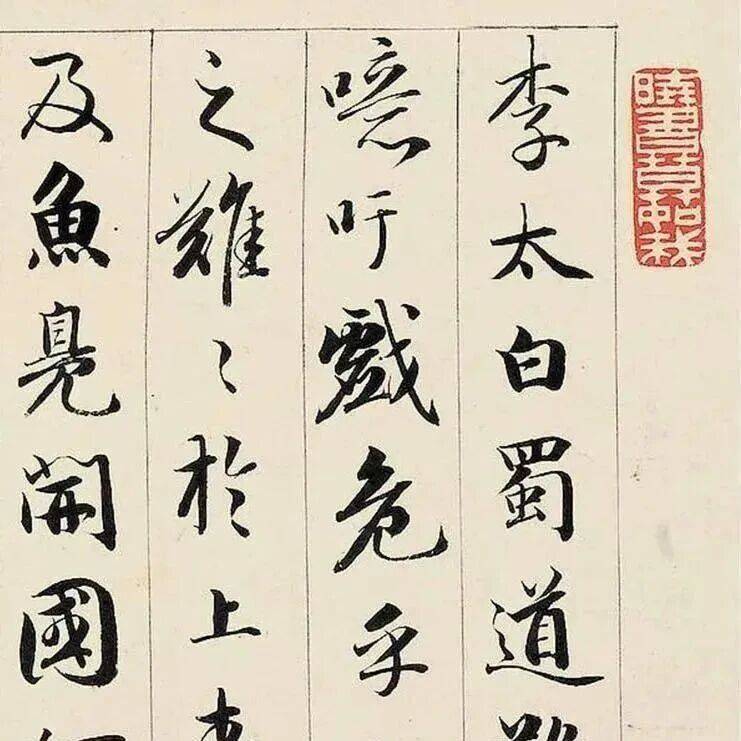 李太白蜀道難
噫吁戲危乎
之難〻於上青
及魚鳧開國